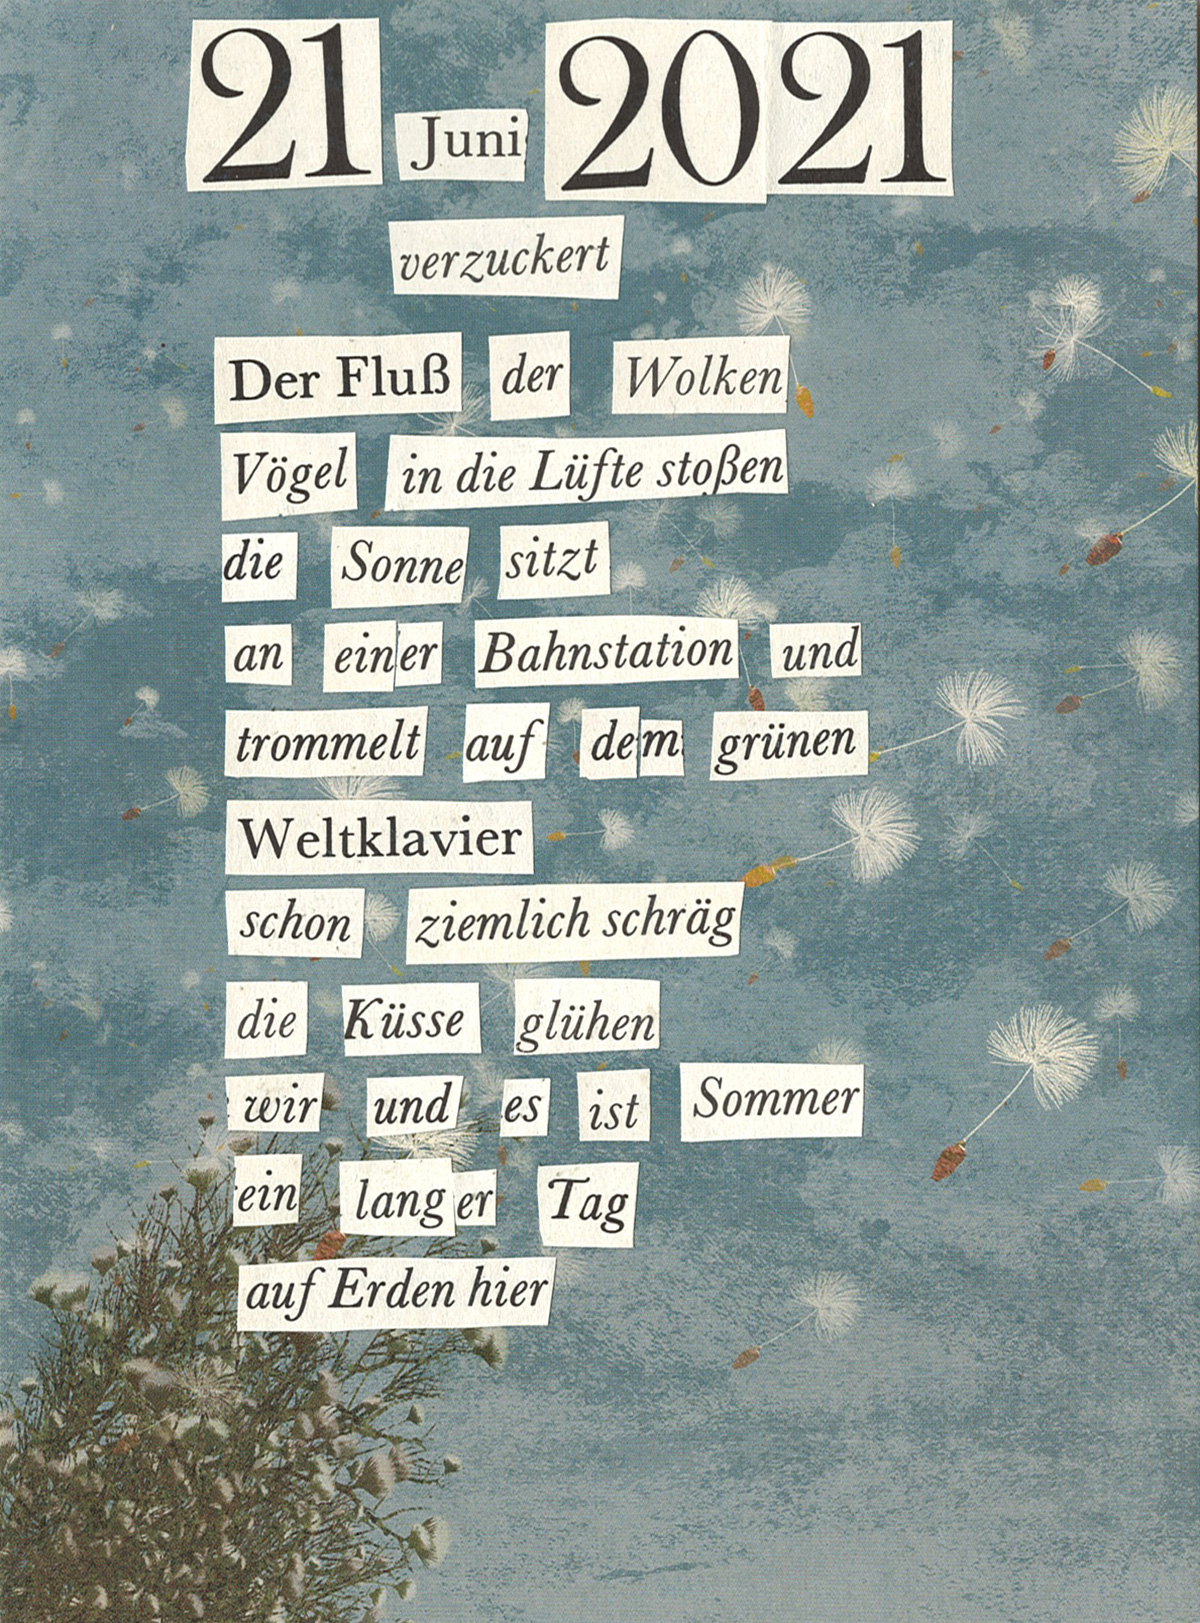 21 Juni 2021
verzuckert
Der Fluß der Wolken
Vögel in die Lüfte stoßen
die Sonne sitzt
an einer Bahnstation und
trommelt auf dem grünen
Weltklavier
schon ziemlich schräg
die Küsse glühen
wir und es ist Sommer
ein langer Tag
auf Erden hier